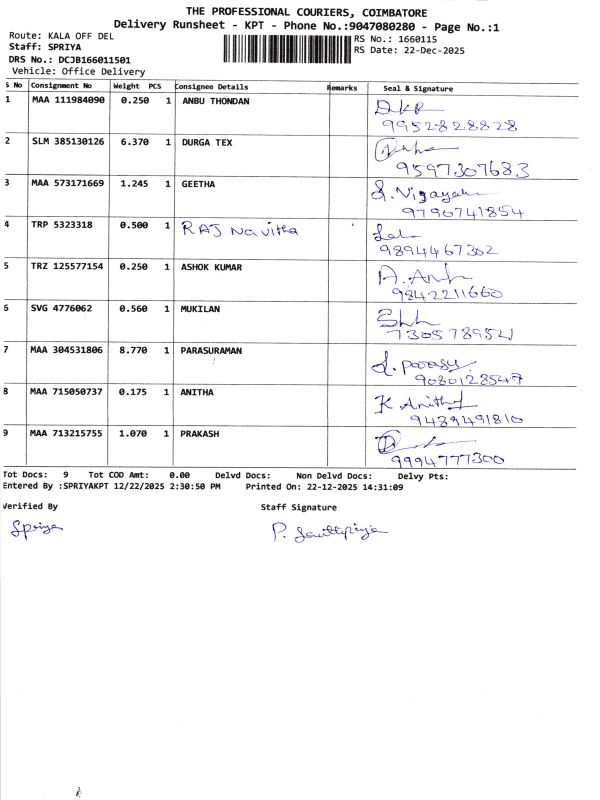 THE PROFESSIONAL COURIERS, COIMBATORE
Delivery Runsheet - KPT - Phone No.:9047080280 - Page No.:1
Route: KALA OFF DEL RS No.: 1660115
Staff: SPRIYA RS Date: 22-Dec-2025
DRS No.: DCJB166011501
Vehicle: Office Delivery
S No Consignment No Weight PCS Consignee Details Remarks Seal & Signature
1 MAA 111984090 0.250 1 ANBU THONDAN
9952828828
2 SLM 385130126 6.370 1 DURGA TEX
9597307683
3 MAA 573171669 1.245 1 GEETHA
9790741854
4 TRP 5323318 0.500 1 RAJ Navitha
9894467302
5 TRZ 125577154 0.250 1 ASHOK KUMAR
9842211660
6 SVG 4776062 0.560 1 MUKILAN
7305789521
7 MAA 304531806 8.770 1 PARASURAMAN
9080128547
8 MAA 715050737 0.175 1 ANITHA K Anitha
9489491810
9 MAA 713215755 1.070 1 PRAKASH
9994777300
Tot Docs: 9 Tot COD Amt: 0.00 Delvd Docs: Non Delvd Docs: Delvy Pts:
Entered By :SPRIYAKPT 12/22/2025 2:30:50 PM Printed On: 22-12-2025 14:31:09
Verified By Staff Signature
Spriya